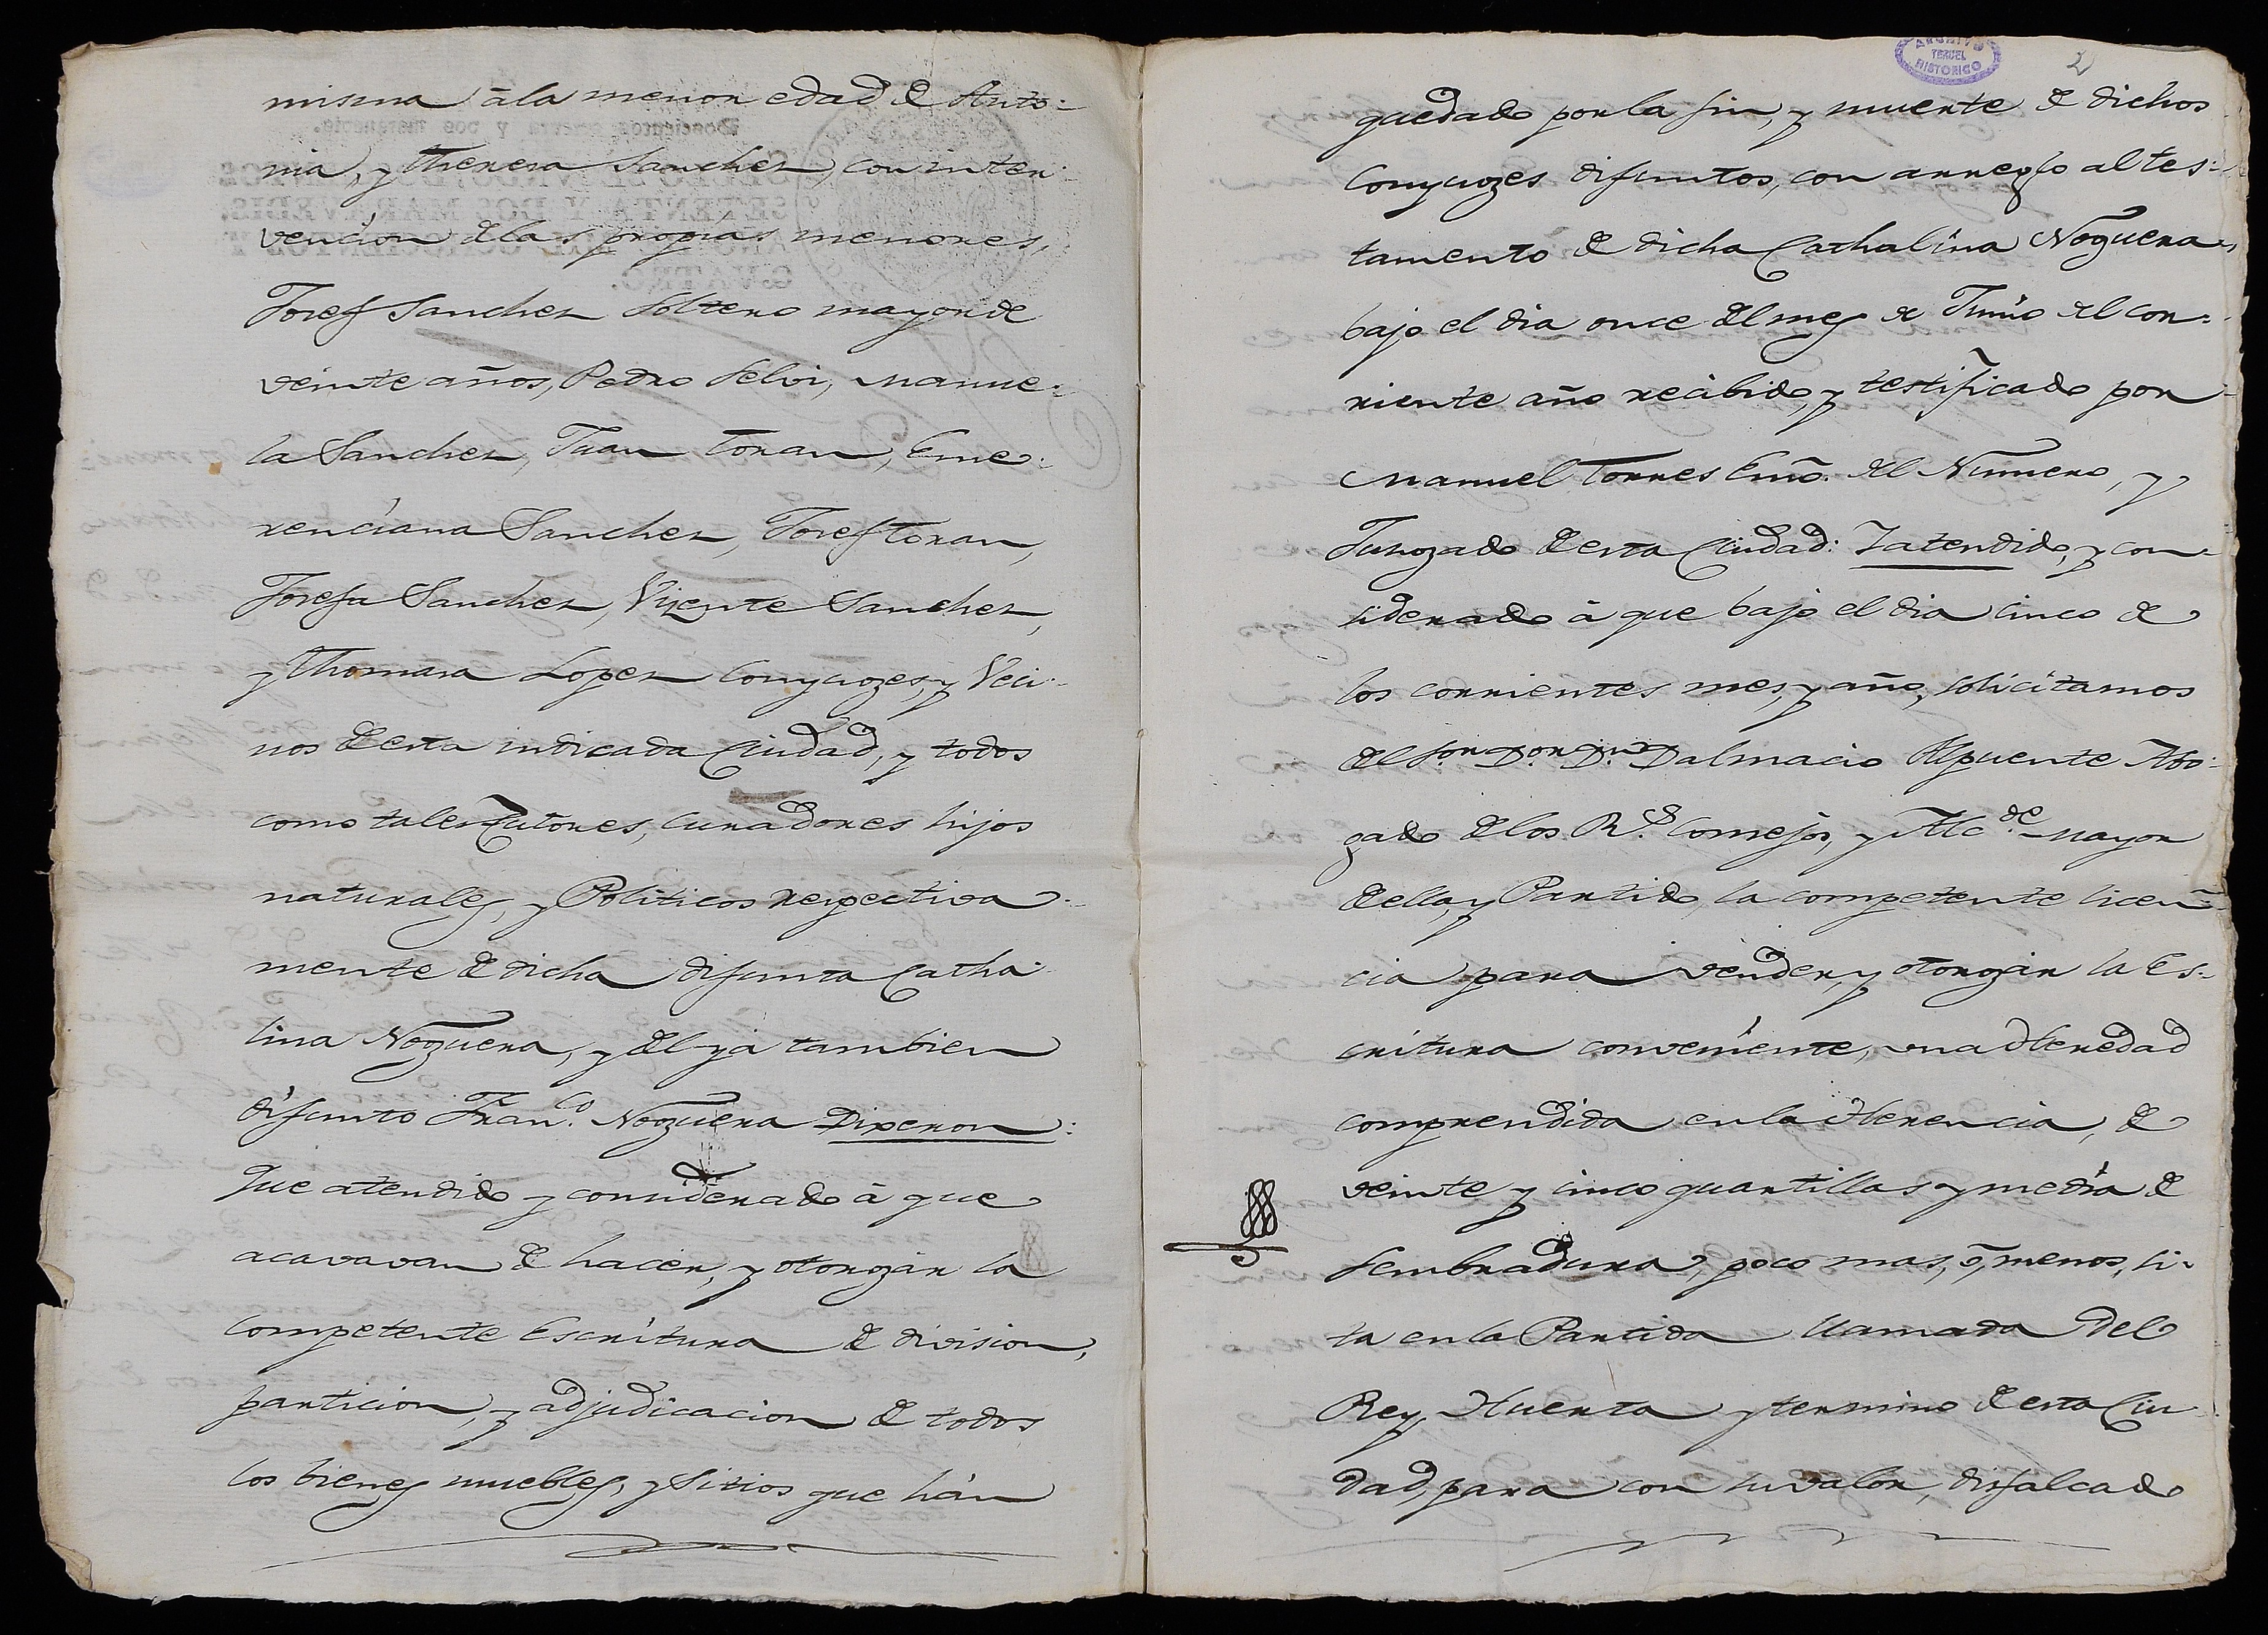 misma â la menor edad de Anto:
nia, y Theresa Sanchez, con inter-
vencion de las propias menores,
Josef Sanchez soltero mayor de
veinte años, Pedro Selvi, Manue:
la Sanchez, Juan Toran, Eme:
renciana Sanchez, Josef Toran,
Josefa Sanchez, Vizente Sanchez,
y Thomasa Lopez Conyugzes, y Veci-
nos de esta indicada Ciudad, y todos
como tales Tutores, curadores hijos
naturales, y Politicos respectiva-
mente de dicha difunta Catha-
lina Noguera, y del ya tambien
difunto Fran.co Noguera Dixeron:
Que atendido y considerado â que
acavavan de hacer, y otorgar la
competente Escritura de division,
particion, y adjudicacion de todos
los bienes muebles, y sitios que hán
ARCHIVO
TERUEL
HISTORICO
2
quedado por la fin, y muerte de dichos
Conyugzes difuntos, con arreglo al tes:
tamento de dicha Cathalina Noguera,
bajo el dia once del mes de Junio del cor-
riente año recibido, y testificado por
Manuel Torres Esno. del Numero, y
Juzgado de esta Ciudad: Y atendido, y con-
siderado â que bajo el dia cinco de
los corrientes mes, y año, solicitamos
del S.or D.or D.n Dalmacio Alpuente Abo:
gado de los R.s Consejos, y Alc.de Mayor
de ella, y Partido, la competente licen-
cia para vender, y otorgar la Es-
critura conveniente, una Heredad
comprendida en la Herencia, de
veinte y cinco quartillas y media de
sembradura, poco mas, ô, menos, si-
ta en la Partida llamada del
Rey, Huerta y termino de esta Ciu-
dad, para con su valor, disfalcado